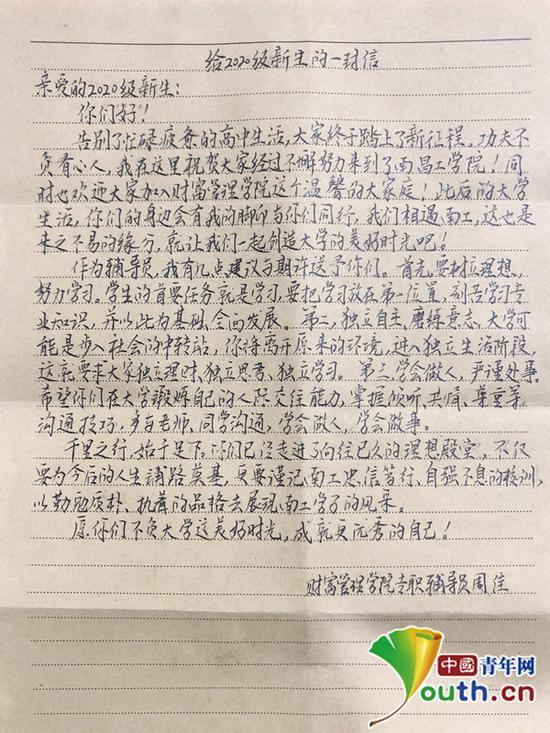 给2020级新生的一封信
亲爱的2020级新生：
你们好！
告别了忙碌疲惫的高中生活，大家终于踏上了新征程。功夫不
负有心人，我在这里祝贺大家经过不懈努力来到了南昌工学院！同
时也欢迎大家加入财富管理学院这个温馨的大家庭！此后的大学
生活，你们的身边会有我的脚印与你们同行，我们相遇南工，这也是
来之不易的缘分，就让我们一起创造大学的美好时光吧！
作为辅导员，我有几点建议与期许送予你们。首先，要树立理想，
努力学习。学生的首要任务就是学习，要把学习放在第一位置，刻苦学习专
业知识，并以此为基础，全面发展。第二，独立自主，磨练意志，大学可
能是步入社会的中转站，你将离开原来的环境，进入独立生活阶段，
这就要求大家独立理财、独立思考、独立学习。第三，学会做人，严谨处事。
希望你们在大学锻炼自己的人际交往能力，掌握倾听、共情、尊重等
沟通技巧，多与老师、同学沟通，学会做人，学会做事。
千里之行，始于足下。你们已经走进了向往已久的理想殿堂，不仅
要为今后的人生铺路奠基，更要谨记南工忠信笃行、自强不息的校训，
以勤勉质朴、执着的品格去展现南工学子的风采。
愿你们不负大学这美好时光，成就更优秀的自己！
财富管理学院专职辅导员周佳
中國青年网
Youth.cn